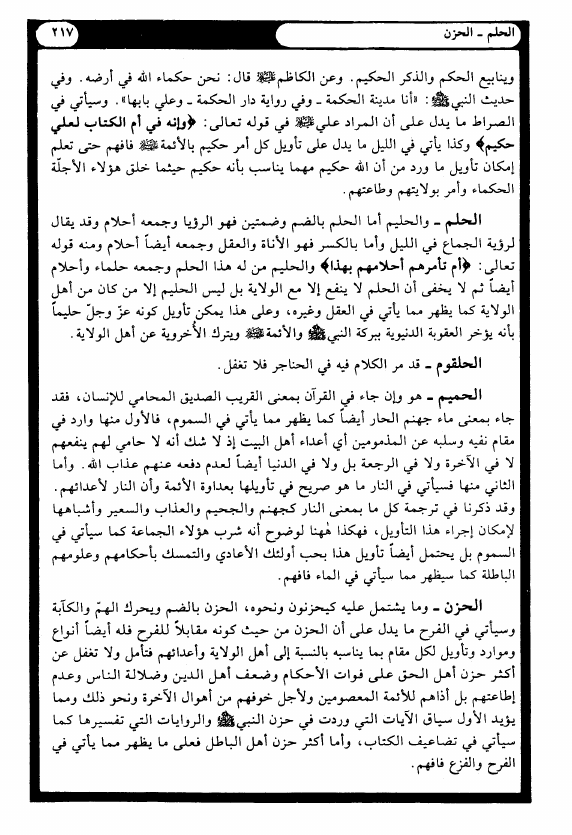 الحلم ـ الحزن
٢١٧
وينابيع الحكم والذكر الحكيم. وعن الكاظم ﷺ قال: نحن حكماء الله في أرضه. وفي
حديث النبي ﷺ: «أنا مدينة الحكمة ـ وفي رواية دار الحكمة ـ وعلي بابها». وسيأتي في
الصراط ما يدل على أن المراد علي ﷺ في قوله تعالى: ﴿وإنه في أم الكتاب لعلي
حكيم﴾ وكذا يأتي في الليل ما يدل على تأويل كل أمر حكيم بالأئمة ﷺ فافهم حتى تعلم
إمكان تأويل ما ورد من أن الله حكيم مهما يناسب بأنه حكيم حيثما خلق هؤلاء الأجلّة
الحكماء وأمر بولايتهم وطاعتهم.
الحلم ـ والحليم أما الحلم بالضم وضمتين فهو الرؤيا وجمعه أحلام وقد يقال
لرؤية الجماع في الليل وأما بالكسر فهو الأناة والعقل وجمعه أيضاً أحلام ومنه قوله
تعالى: ﴿أم تأمرهم أحلامهم بهذا﴾ والحليم من له هذا الحلم وجمعه حلماء وأحلام
أيضاً ثم لا يخفى أن الحلم لا ينفع إلا مع الولاية بل ليس الحليم إلا من كان من أهل
الولاية كما يظهر مما يأتي في العقل وغيره، وعلى هذا يمكن تأويل كونه عزّ وجلّ حليماً
بأنه يؤخر العقوبة الدنيوية ببركة النبي ﷺ والأئمة ﷺ ويترك الأُخروية عن أهل الولاية.
الحلقوم ـ قد مر الكلام فيه في الحناجر فلا تغفل.
الحميم ـ هو وإن جاء في القرآن بمعنى القريب الصديق المحامي للإنسان، فقد
جاء بمعنى ماء جهنم الحار أيضاً كما يظهر مما يأتي في السموم، فالأول منها وارد في
مقام نفيه وسلبه عن المذمومين أي أعداء أهل البيت إذ لا شك أنه لا حامي لهم ينفعهم
لا في الآخرة ولا في الرجعة بل ولا في الدنيا أيضاً لعدم دفعه عنهم عذاب الله. وأما
الثاني منها فسيأتي في النار ما هو صريح في تأويلها بعداوة الأئمة وأن النار لأعدائهم.
وقد ذكرنا في ترجمة كل ما بمعنى النار كجهنم والجحيم والعذاب والسعير وأشباهها
لإمكان إجراء هذا التأويل، فهكذا هٰهنا لوضوح أنه شرب هؤلاء الجماعة كما سيأتي في
السموم بل يحتمل أيضاً تأويل هذا بحب أولئك الأعادي والتمسك بأحكامهم وعلومهم
الباطلة كما سيظهر مما سيأتي في الماء فافهم.
الحزن ـ وما يشتمل عليه كيحزنون ونحوه، الحزن بالضم ويحرك الهمّ والكآبة
وسيأتي في الفرح ما يدل على أن الحزن من حيث كونه مقابلاً للفرح فله أيضاً أنواع
وموارد وتأويل لكل مقام بما يناسبه بالنسبة إلى أهل الولاية وأعدائهم فتأمل ولا تغفل عن
أكثر حزن أهل الحق على فوات الأحكام وضعف أهل الدين وضلالة الناس وعدم
إطاعتهم بل أذاهم للأئمة المعصومين ولأجل خوفهم من أهوال الآخرة ونحو ذلك ومما
يؤيد الأول سياق الآيات التي وردت في حزن النبي ﷺ والروايات التي تفسيرها كما
سيأتي في تضاعيف الكتاب، وأما أكثر حزن أهل الباطل فعلى ما يظهر مما يأتي في
الفرح والفزع فافهم.